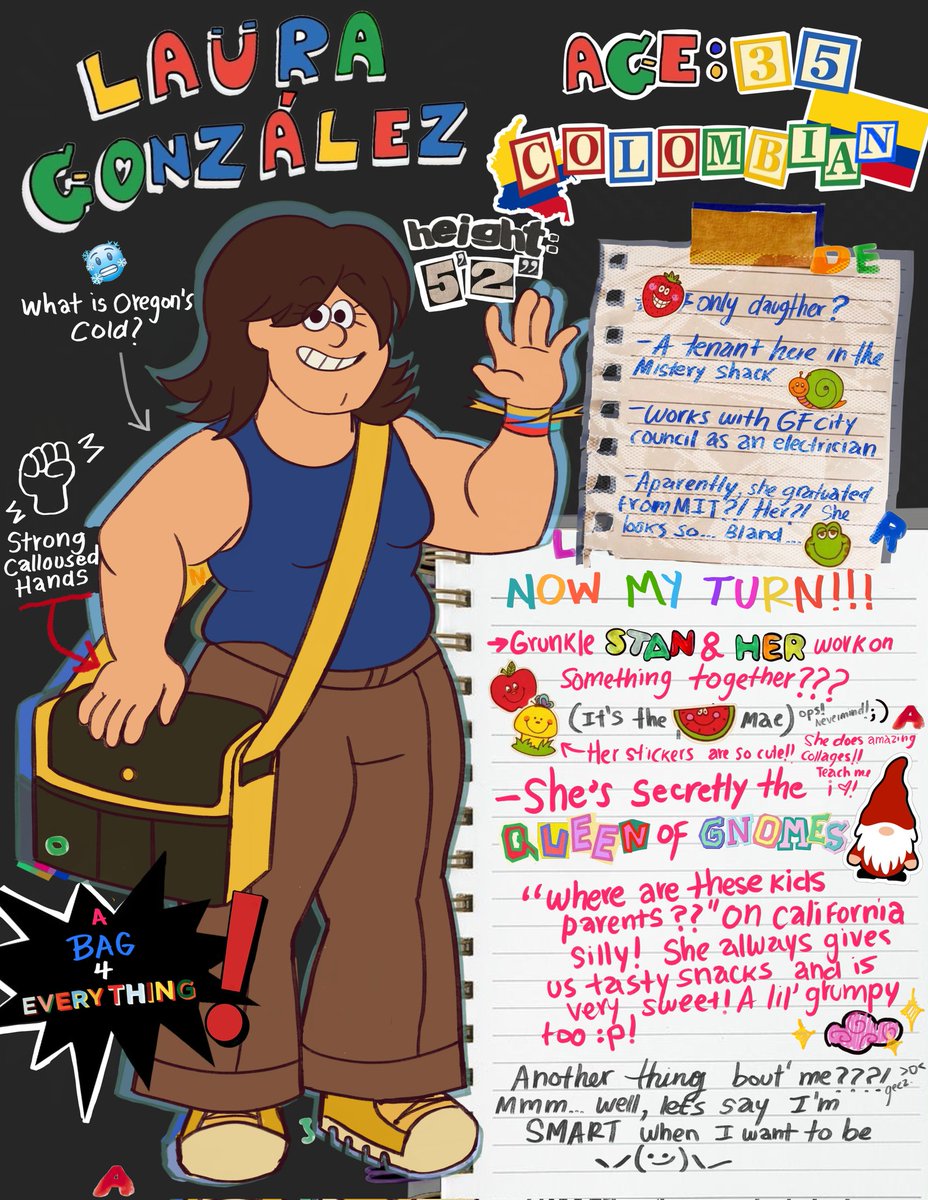 LAÜRA
GONZÁLEZ
AGE: 35
COLOMBIAN
height:
5'2"
What is Oregon's
Cold?
Strong
Calloused
Hands
A
BAG
4
EVERYTHING
!
DE
only daugther?
-A tenant here in the
Mistery shack
-works with GF city
council as an electrician
-Aparently, she graduated
from MIT?! Her?! She
looks so... Bland...
R
L
N
O
A
NOW MY TURN!!!
→Grunkle STAN & HER work on
Something together???
(It's the mae) ops! Nevermind!! ;)
A
←Her stickers are so cute!! She does amazing
collages!!
Teach me
i ♡!
-She's secretly the
QUEEN OF GNOMES
"where are these kids
parents??" on California
silly! She always gives
us tasty snacks and is
very sweet! A lil' grumpy
too :p!
Another thing bout' me???!
>o<
geez..
Mmm... well, let's say I'm
SMART when I want to be